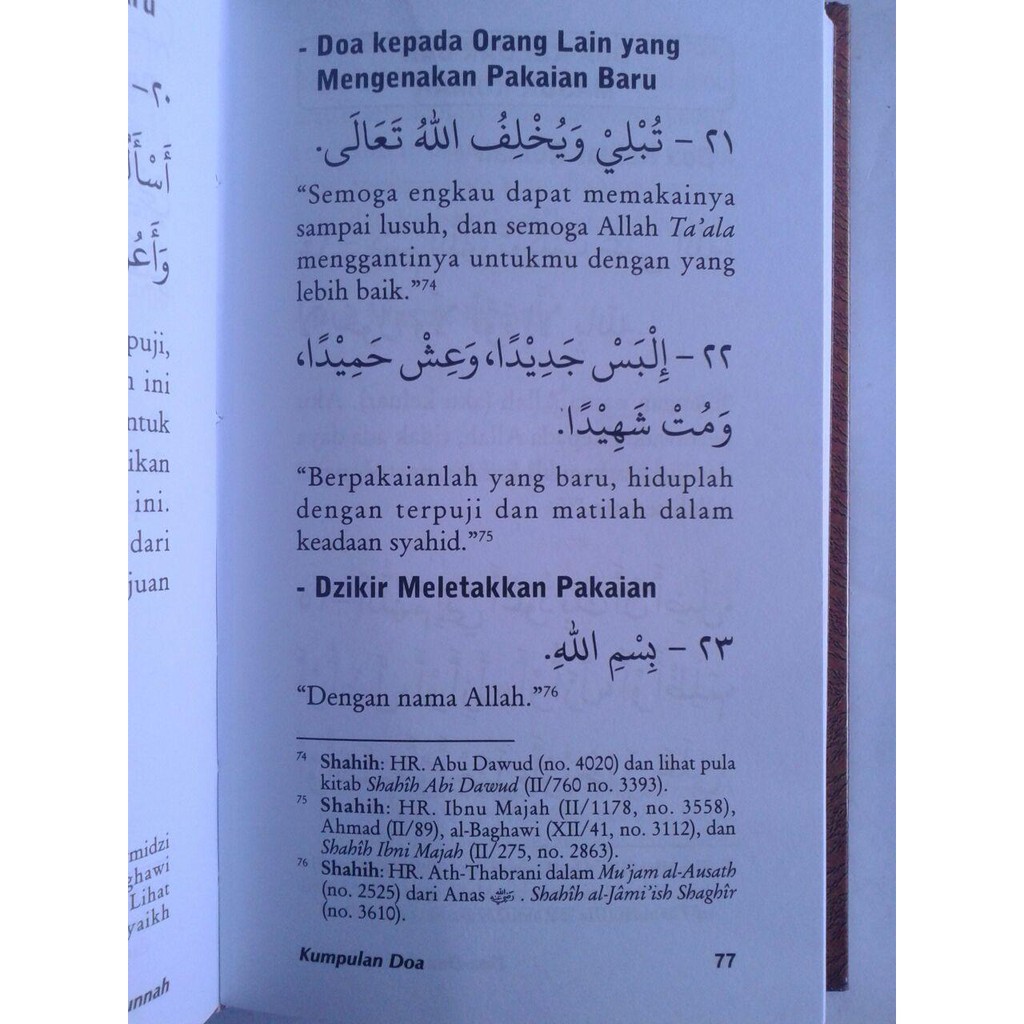 - Doa kepada Orang Lain yang
Mengenakan Pakaian Baru
٢١ – تُبْلِيْ وَيُخْلِفُ اللهُ تَعَالَى.
“Semoga engkau dapat memakainya
sampai lusuh, dan semoga Allah Ta’ala
menggantinya untukmu dengan yang
lebih baik.”⁷⁴
٢٢ – إِلْبَسْ جَدِيْدًا، وَعِشْ حَمِيْدًا،
وَمُتْ شَهِيْدًا.
“Berpakaianlah yang baru, hiduplah
dengan terpuji dan matilah dalam
keadaan syahid.”⁷⁵
- Dzikir Meletakkan Pakaian
٢٣ – بِسْمِ اللهِ.
“Dengan nama Allah.”⁷⁶
⁷⁴ Shahih: HR. Abu Dawud (no. 4020) dan lihat pula
kitab Shahîh Abi Dawud (II/760 no. 3393).
⁷⁵ Shahih: HR. Ibnu Majah (II/1178, no. 3558),
Ahmad (II/89), al-Baghawi (XII/41, no. 3112), dan
Shahîh Ibni Majah (II/275, no. 2863).
⁷⁶ Shahih: HR. Ath-Thabrani dalam Mu’jam al-Ausath
(no. 2525) dari Anas . Shahîh al-Jâmi’ish Shaghîr
(no. 3610).
Kumpulan Doa 77